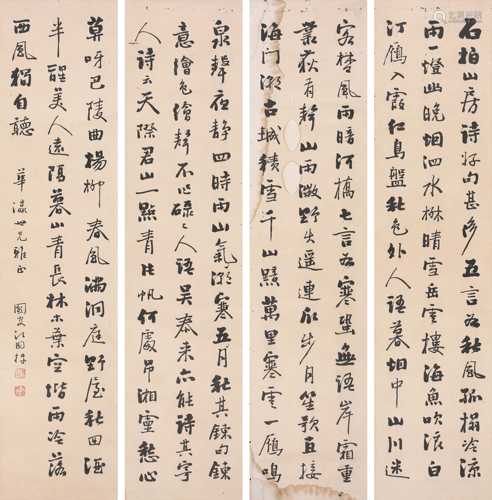 石柏山房詩好句甚多五言如秋風孤榻冷涼
雨一燈幽晚烟泗水晴雪岳雲樓海魚吹浪白
汀鴈入霞紅鳥盤秋色外人語暮烟中山川迷
客楚風雨暗河橋七言如寒蛩無語岸霜重
叢荻有聲山雨微野遥連步月笙歌直接
海門潮古城積雪千山萬里寒雲一雁鳴
泉聲夜静四時雨山氣潮寒五月秋其鍊句鍊
意繪色繪聲不必碌碌人語吳来亦能詩其字
人詩云天際君山一點青片帆何處吊湘靈愁心
莫呀巴陵曲楊柳春風滿洞庭野屋秋回酒
半醒美人遠隔暮山青長林木葉空階雨冷落
西風獨自聽
華瀛世兄雅正
國